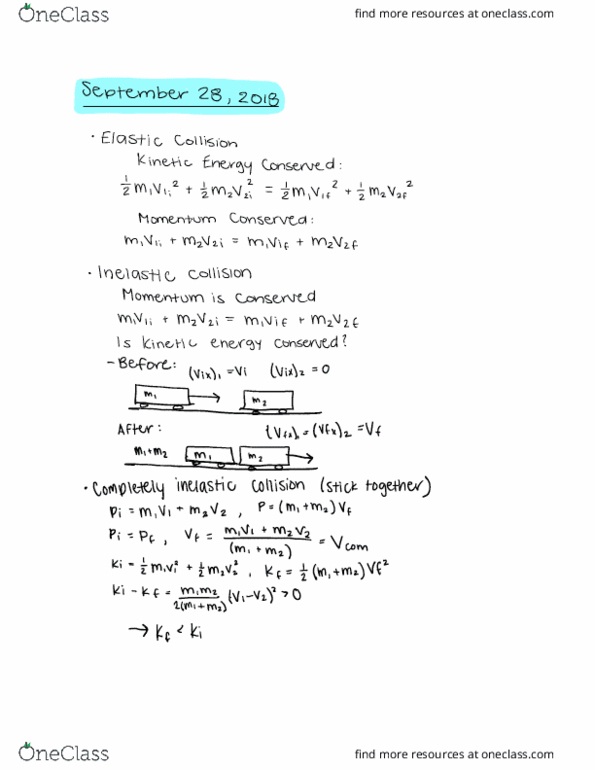 OneClass
find more resources at oneclass.com
September 28, 2018
· Elastic Collision
Kinetic Energy Conserved:
½m₁V₁ᵢ² + ½m₂V₂ᵢ² = ½m₁V₁f² + ½m₂V₂f²
Momentum Conserved:
m₁V₁ᵢ + m₂V₂ᵢ = m₁V₁f + m₂V₂f
· Inelastic Collision
Momentum is Conserved
m₁V₁ᵢ + m₂V₂ᵢ = m₁V₁f + m₂V₂f
Is kinetic energy conserved?
- Before: (Vix)₁ = Vi (Vix)₂ = 0
m₁ m₂
After: (Vfx)₁ = (Vfx)₂ = Vf
m₁+m₂ m₁ m₂
· Completely inelastic collision (stick together)
Pi = m₁V₁ + m₂V₂ , P = (m₁ + m₂) Vf
Pi = Pf , Vf = (m₁V₁ + m₂V₂)/(m₁ + m₂) = Vcom
Ki = ½m₁V₁² + ½m₂V₂² , Kf = ½(m₁+m₂) Vf²
Ki - Kf = m₁m₂/2(m₁+m₂) (V₁-V₂)² > 0
→ Kf < Ki
OneClass
find more resources at oneclass.com